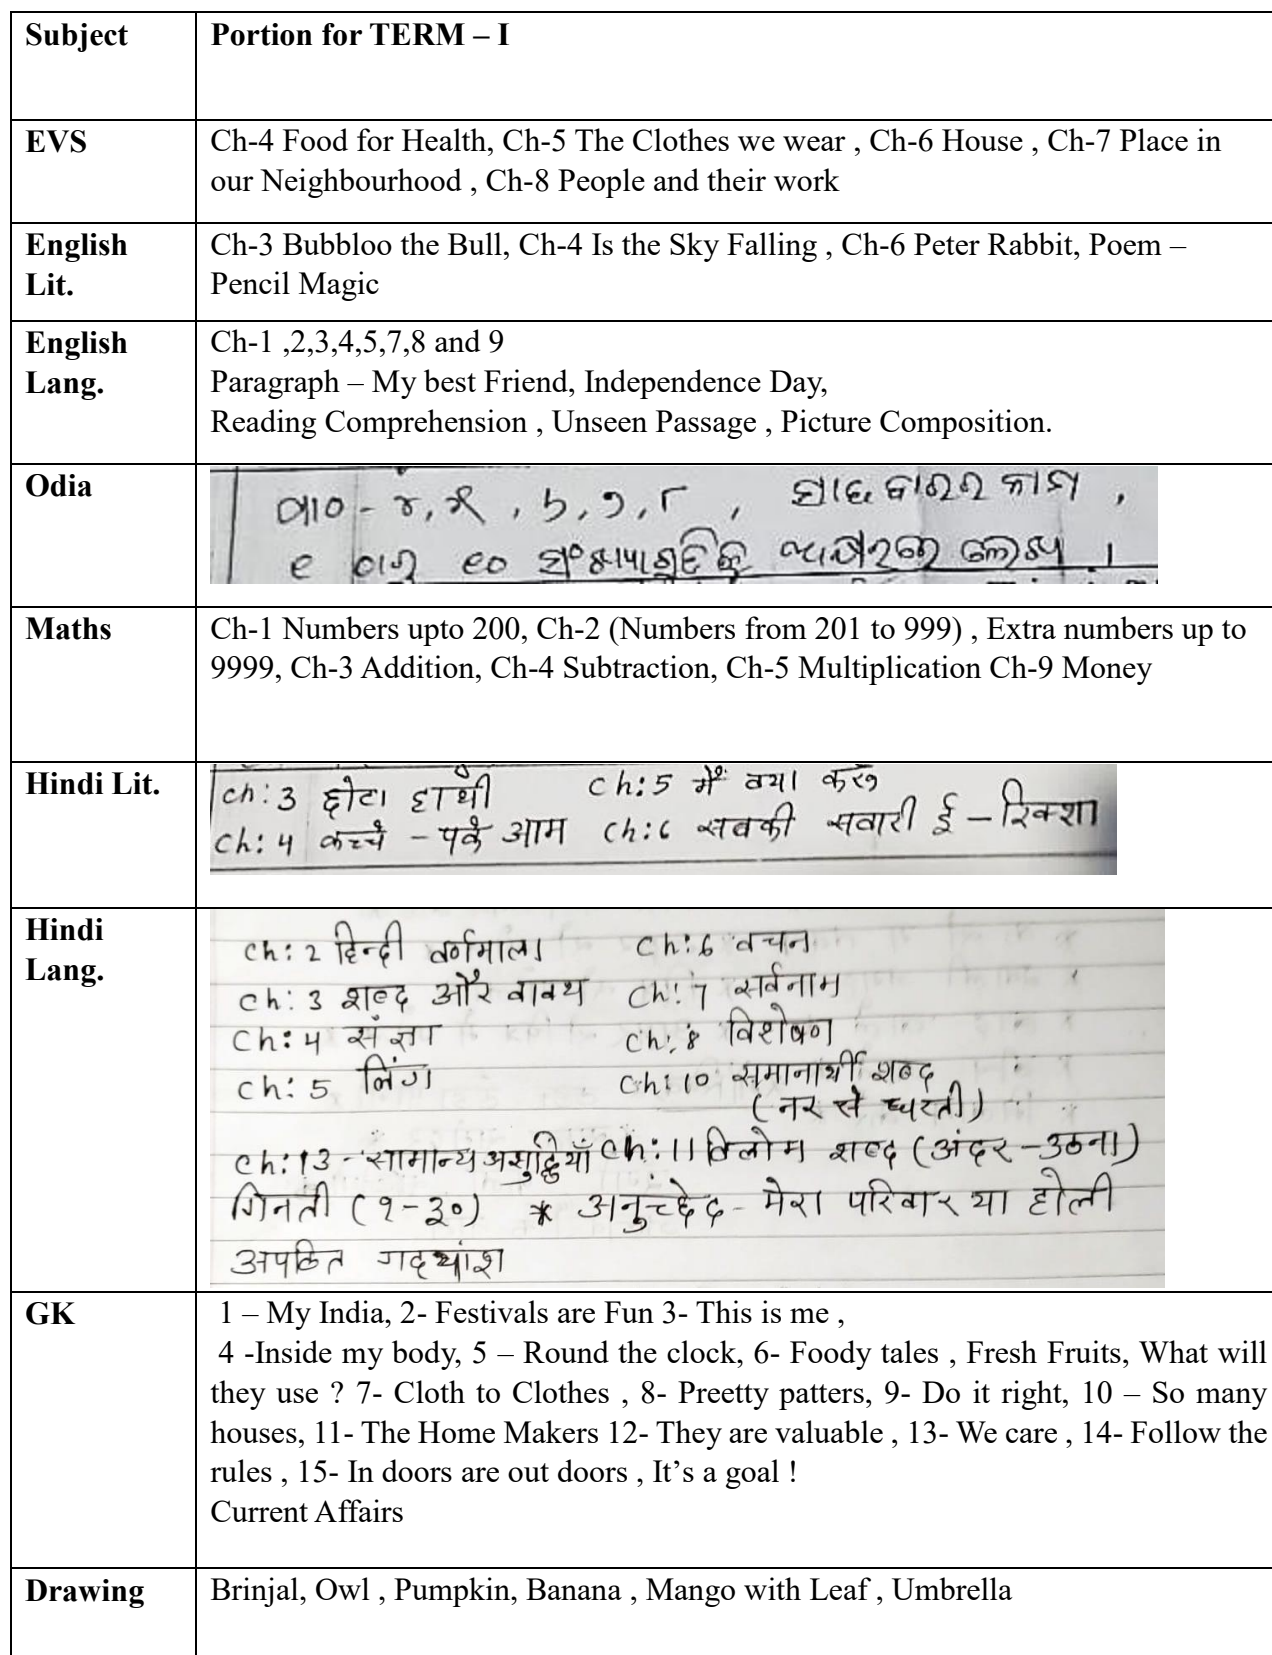 Subject
Portion for TERM – I
EVS
Ch-4 Food for Health, Ch-5 The Clothes we wear , Ch-6 House , Ch-7 Place in
our Neighbourhood , Ch-8 People and their work
English
Lit.
Ch-3 Bubbloo the Bull, Ch-4 Is the Sky Falling , Ch-6 Peter Rabbit, Poem –
Pencil Magic
English
Lang.
Ch-1 ,2,3,4,5,7,8 and 9
Paragraph – My best Friend, Independence Day,
Reading Comprehension , Unseen Passage , Picture Composition.
Odia
ପାଠ - ୪, ୫, ୬, ୭, ୮ , ସାତ ବାରର ନାମ ,
୧ ଠାରୁ ୧୦ ଲେଖ ।
Maths
Ch-1 Numbers upto 200, Ch-2 (Numbers from 201 to 999) , Extra numbers up to
9999, Ch-3 Addition, Ch-4 Subtraction, Ch-5 Multiplication Ch-9 Money
Hindi Lit.
ch: 3 छोटा हाथी ch: 5 मैं क्या करूँ
ch: 4 कच्चे - पके आम ch: 6 सबकी सवारी ई - रिक्शा
Hindi
Lang.
ch: 2 हिन्दी वर्णमाला ch: 6 वचन
ch: 3 शब्द और वाक्य ch: 7 सर्वनाम
ch: 4 संज्ञा ch: 8 विशेषण
ch: 5 लिंग ch: 10 समानार्थी शब्द
(नर से धरती)
ch: 13 - सामान्य अशुद्धियाँ ch: 11 विलोम शब्द (अंदर - उठना)
गिनती (१-३०) * अनुच्छेद - मेरा परिवार या होली
अपठित गद्यांश
GK
1 – My India, 2- Festivals are Fun 3- This is me ,
4 -Inside my body, 5 – Round the clock, 6- Foody tales , Fresh Fruits, What will
they use ? 7- Cloth to Clothes , 8- Preetty patters, 9- Do it right, 10 – So many
houses, 11- The Home Makers 12- They are valuable , 13- We care , 14- Follow the
rules , 15- In doors are out doors , It’s a goal !
Current Affairs
Drawing
Brinjal, Owl , Pumpkin, Banana , Mango with Leaf , Umbrella